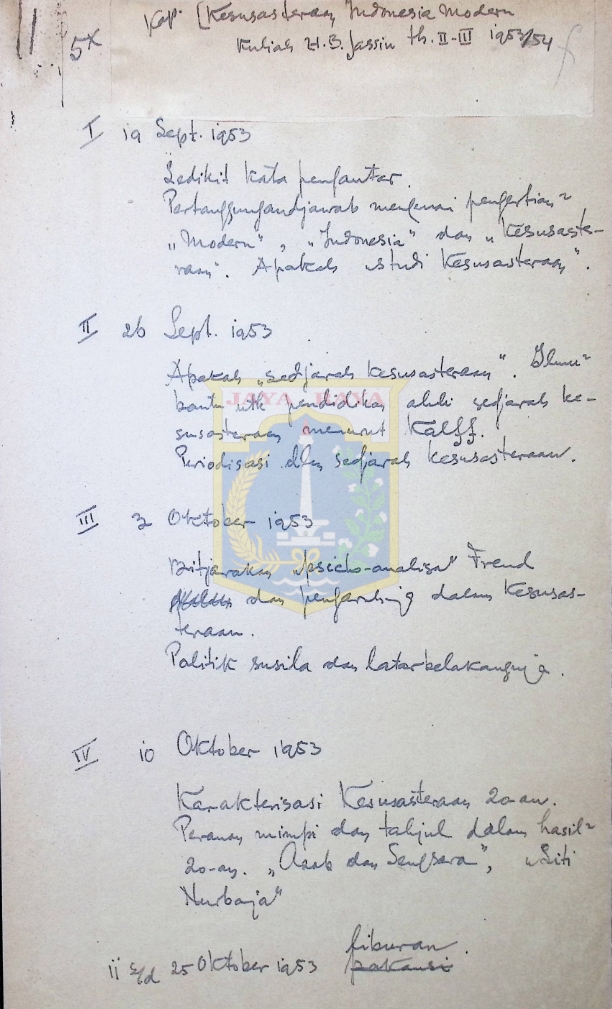 5x
Kop: [Kesusasteraan Indonesia Modern
Kuliah H.B. Jassin th. II-III 1953/54
I 19 Sept. 1953
Sedikit kata pengantar.
Pertanggungandjawab mengenai pengertian²
„Modern", „Indonesia" dan „Kesusaste-
raan". Apakah studi Kesusasteraan".
II 26 Sept. 1953
Apakah „sedjarah kesusasteraan". Ilmu²
bantu utk pendidikan ahli sedjarah ke-
susasteraan menurut Kalff.
Periodisasi dlm sedjarah kesusasteraan.
JAYA RAYA
III 3 Oktober 1953
Bitjarakan „psicho-analisa" Freud
dan pengaruhnja dalam Kesusas-
teraan.
Politik susila dan latarbelakangnja.
IV 10 Oktober 1953
Karakterisasi Kesusasteraan 20-an.
Peranan mimpi dan tahjul dalam hasil²
20-an. „Azab dan Sengsara", „Siti
Nurbaja"
11 s/d 25 Oktober 1953 liburan.
pakansi